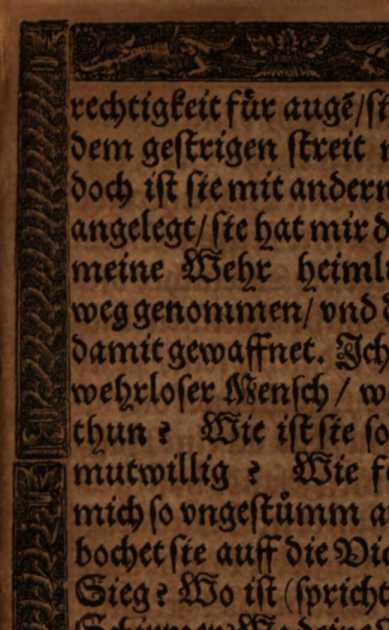 rechtigkeit fuͤr augē/
dem gestrigen streit
doch ist sie mit andern
angelegt/ sie hat mir
meine Wehr heiml
weg genommen/ vnd
damit gewaffnet. Ich
wehrloser Mensch / w
thun ? Wie ist sie so
mutwillig ? Wie
mich so vngestuͤmm a
bochet sie auff die
Sieg? Wo ist (spricht